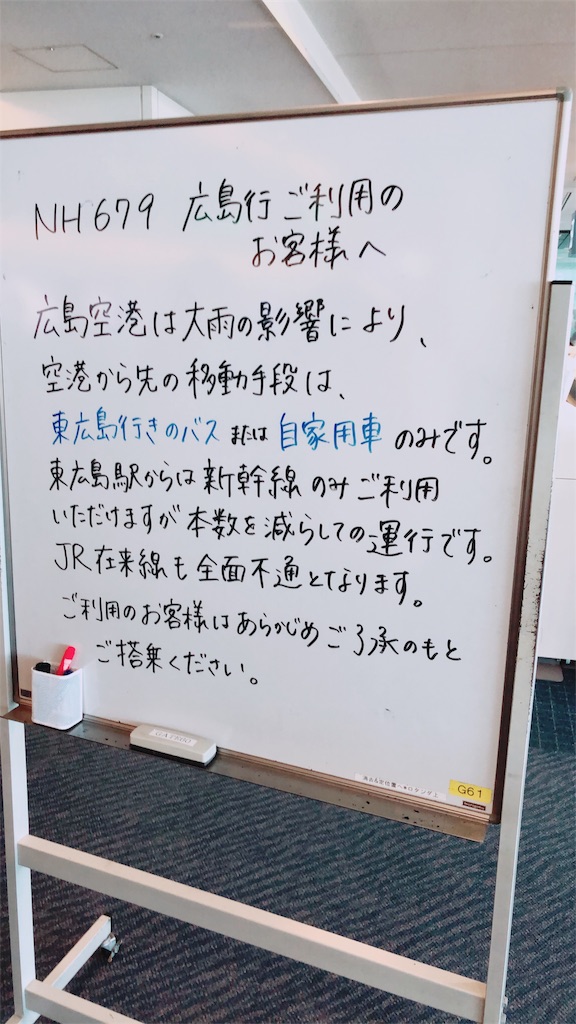 NH679 広島行ご利用の
お客様へ
広島空港は大雨の影響により、
空港から先の移動手段は、
東広島行きのバス または 自家用車 のみです。
東広島駅からは新幹線のみご利用
いただけますが本数を減らしての運行です。
JR在来線も全面不通となります。
ご利用のお客様はあらかじめご了承のもと
ご搭乗ください。
G61